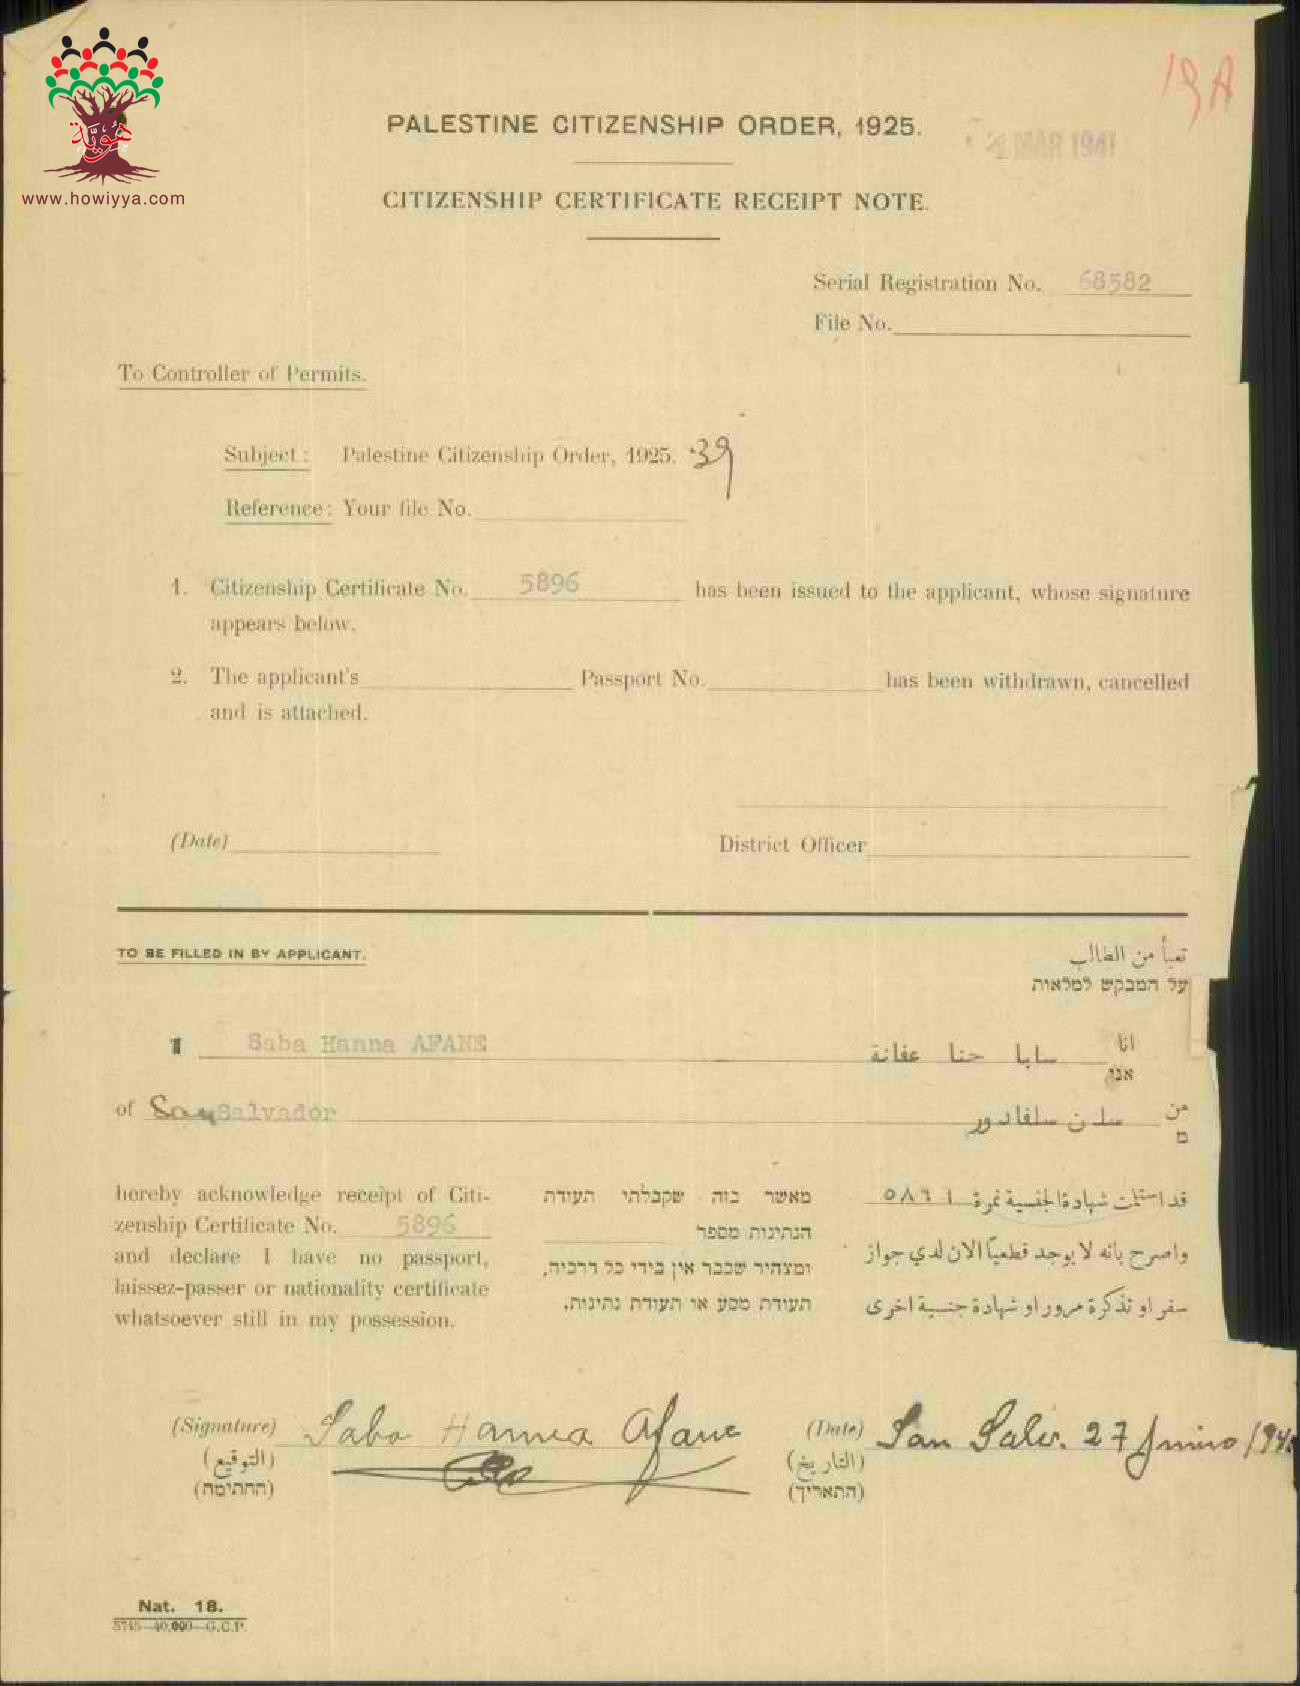 هوية
www.howiyya.com
19A
PALESTINE CITIZENSHIP ORDER, 1925.
MAR 1941
CITIZENSHIP CERTIFICATE RECEIPT NOTE.
Serial Registration No. 68582
File No.
To Controller of Permits.
Subject: Palestine Citizenship Order, 1925. 39
Reference: Your file No.
1. Citizenship Certificate No. 5896 has been issued to the applicant, whose signature
appears below.
2. The applicant's Passport No. has been withdrawn, cancelled
and is attached.
(Date) District Officer
TO BE FILLED IN BY APPLICANT.
تعبأ من الطالب
על המבקש למלאות
I Saba Hanna AFANE
انا سابا حنا عفانة
אני
of San Salvador
من سان سلفادور
מ
hereby acknowledge receipt of Citi-
zenship Certificate No. 5896
and declare I have no passport,
laissez-passer or nationality certificate
whatsoever still in my possession.
מאשר בזה שקבלתי תעודת
הנתינות מספר
ומצהיר שכבר אין בידי כל דרכיה,
תעודת מסע או תעודת נתינות.
قد استلمت شهادة الجنسية نمرة
واصرح بانه لا يوجد قطعياً الان لدي جواز
سفر او تذكرة مرور او شهادة جنسية اخرى
(Signature) Saba Hanna Afane
(التوقيع)
(החתימה)
(Date) San Salv. 27 Junio
(التاريخ)
(התאריך)
Nat. 18.
5745—40,000—G.C.P.